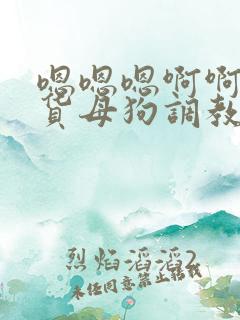 嗯嗯嗯啊啊
賞母狗調教
烈焰滔滔2
未经同意禁止转载